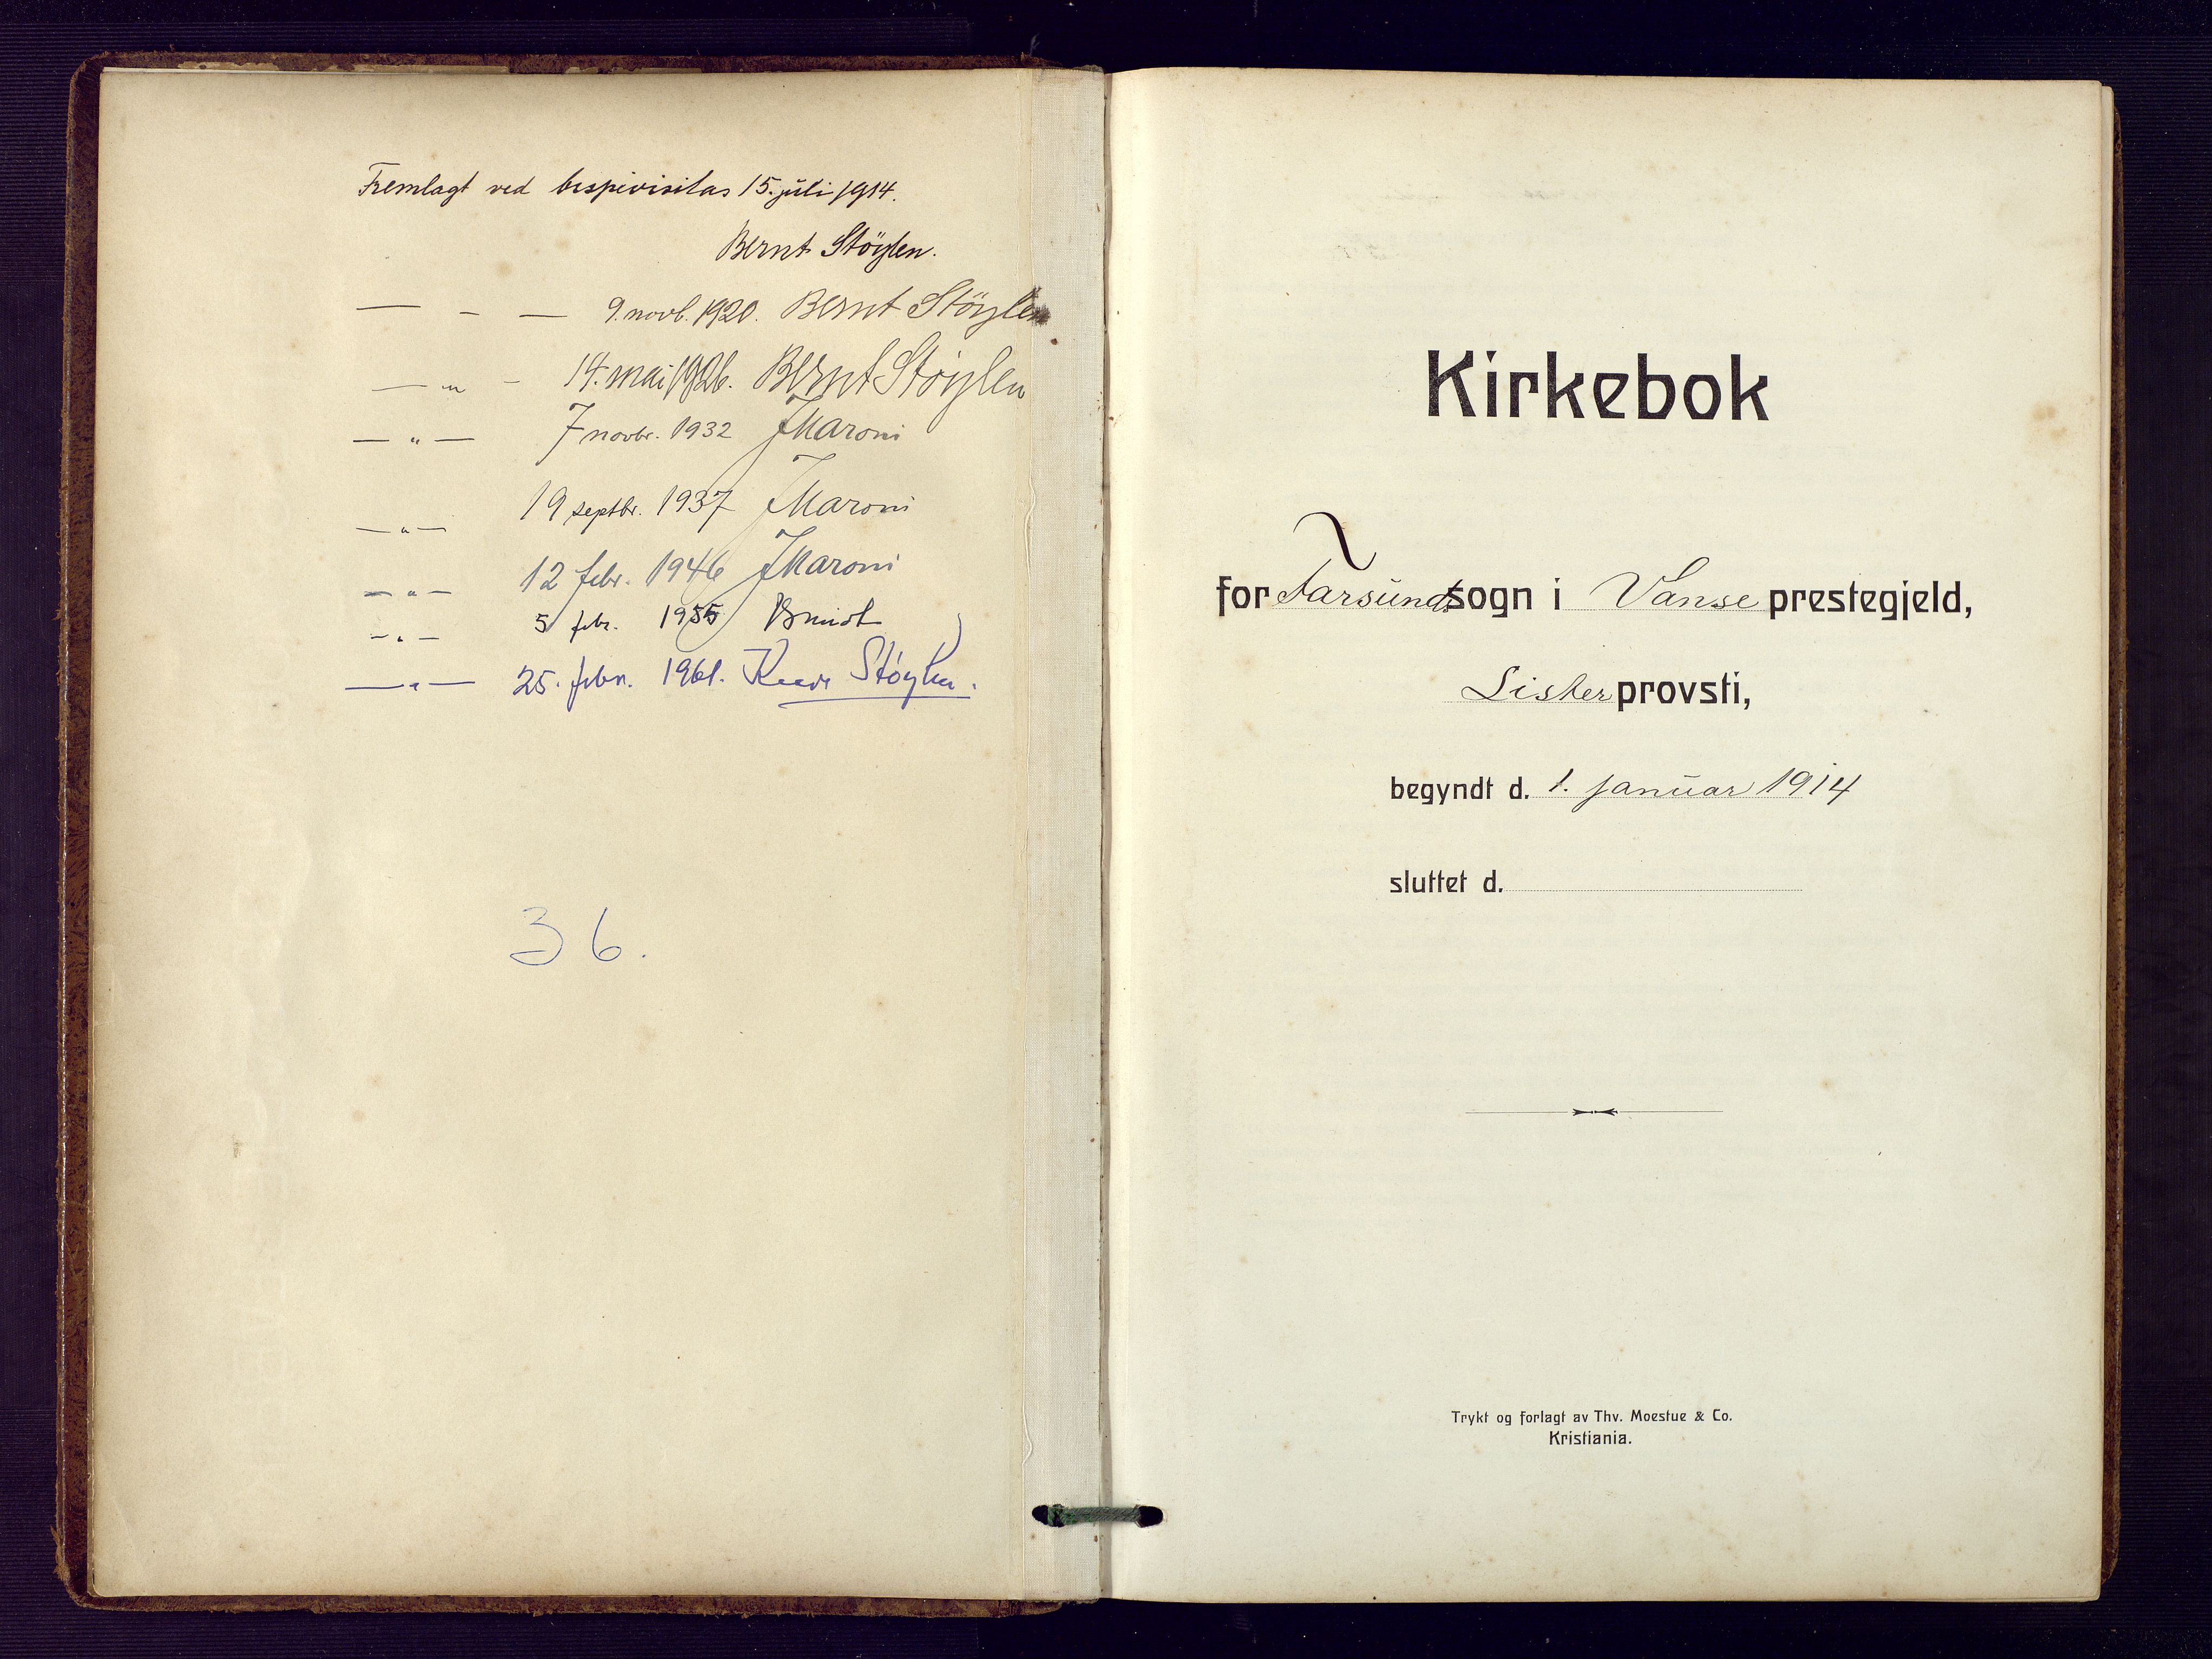 Fremlagt ved bispevisitas 15. juli 1914.
Bernt Støylen.
— - — 9. novb. 1920. Bernt Støylen
— „ - 14. mai 1926. Bernt Støylen
— „ — 7 novbr. 1932 J Maroni
— „ — 19 septbr. 1937 J Maroni
— „ — 12 febr. 1946 J Maroni
— „ — 5 febr. 1955 Smidt
— „ — 25. febr. 1961. Kaare Støylen.
36.
Kirkebok
for Farsund sogn i Vanse prestegjeld,
Lister provsti,
begyndt d. 1. januar 1914
sluttet d.
Trykt og forlagt av Thv. Moestue & Co.
Kristiania.